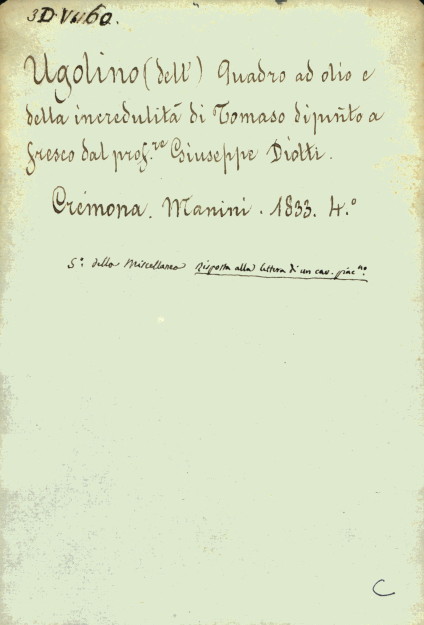 3.D.VII.60.
Ugolino (dell') Quadro ad olio e
della incredulità di Tomaso dipinto a
fresco dal prof.re Giuseppe Diotti.
Cremona. Manini. 1833. 4.°
5°. dello Miscellaneo Risposta alla lettera di un cav. piac.no.
C